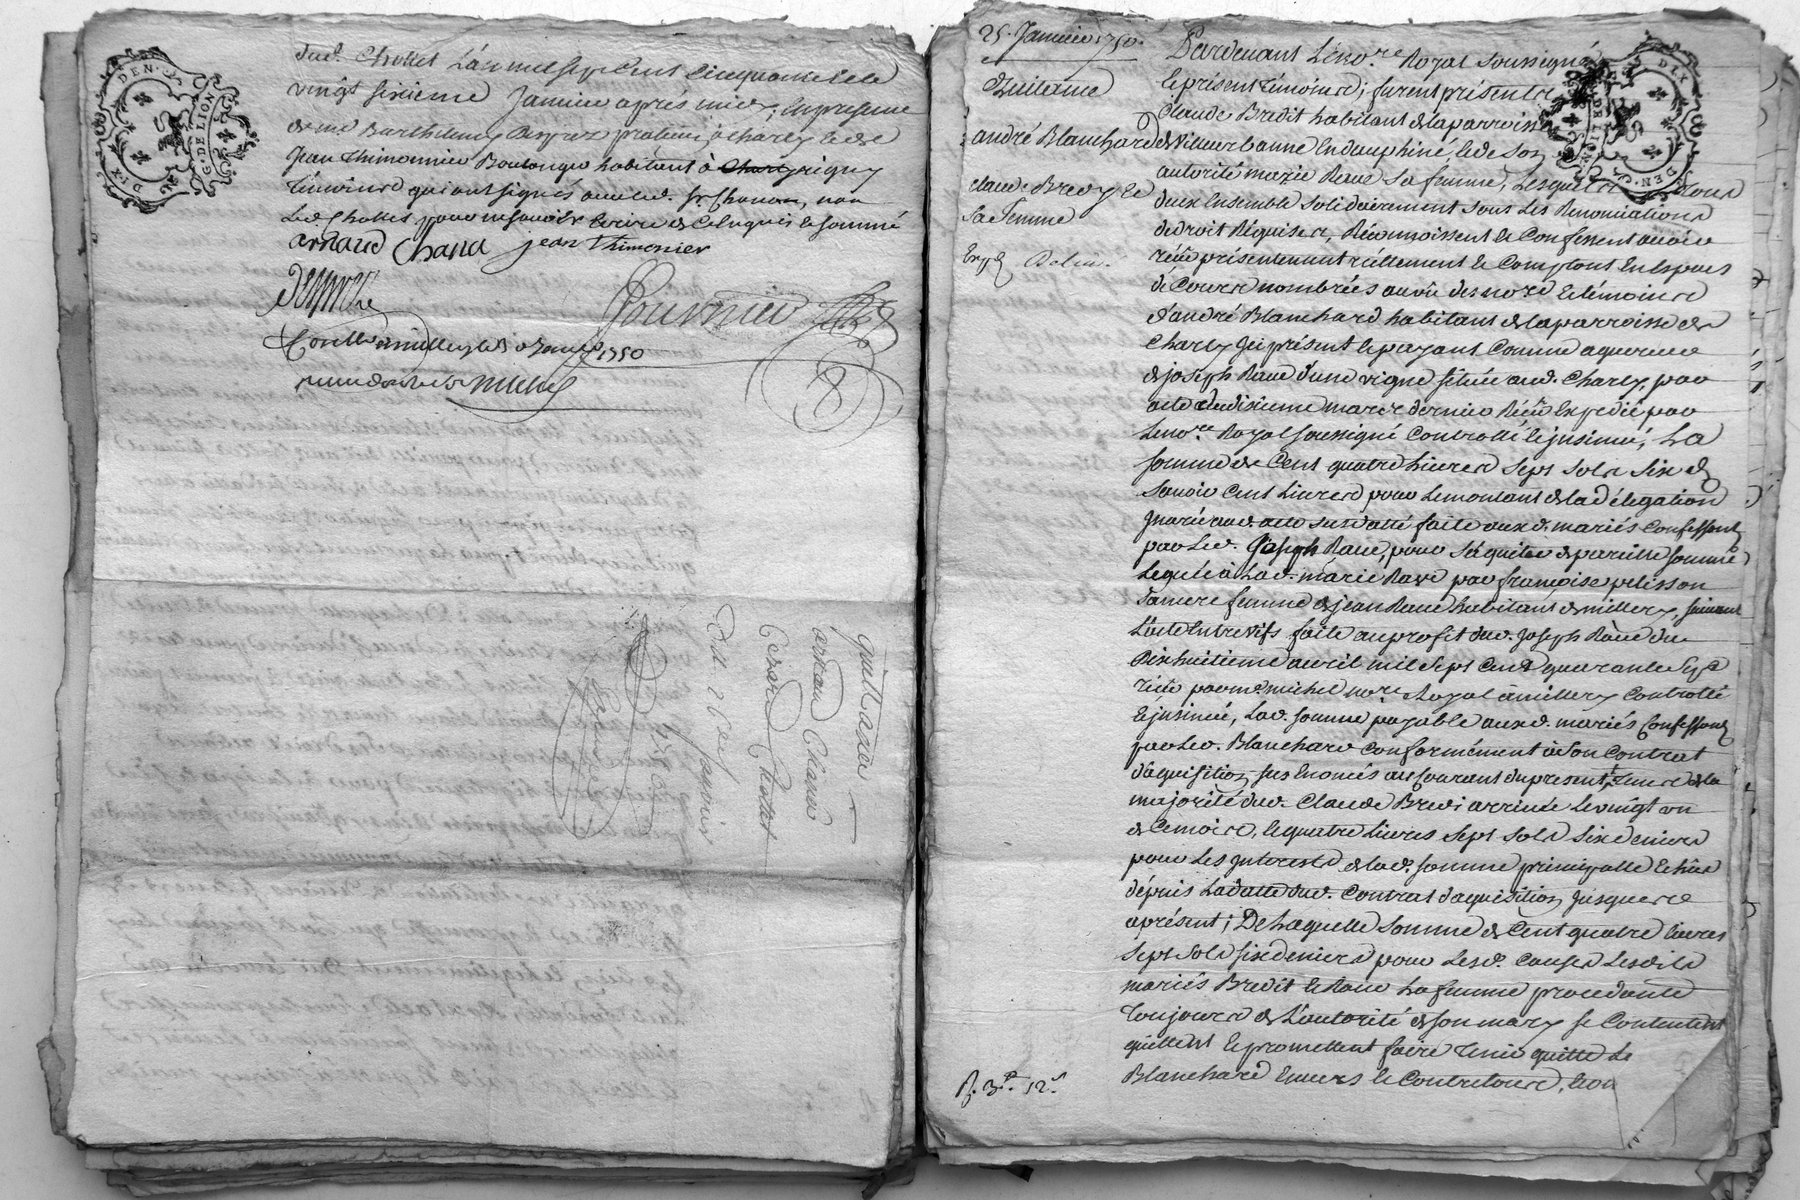 DIX DEN.
G. DE LION
Jud. Chollet L'an mil sept Cent Cinquante et le
vingt sixieme Janvier après midy, En presence
de me Barthelemy praticien à charly et de
Jean Thimonnier Boulanger habitant à Charly rigny
témoins qui ont signés avec led. Sr Chanas, non
Led. Chollet pour ne savoir Ecrire de Ce Enquis et sommé
arnaud Chana jean Thimonier
Fournier
Controllé à millery le Janvier 1750
michel
quittance
arnaud Chanas
Chollet
Du 26 Janvier
25. Janvier 1750.
Quitance
andré Blanchard
claude Bredy et
sa femme
Exp.
Pardevant Le nore. Royal soussigné
et présent témoins, furent présents
Claude Bredit habitant de la parroisse
de villeurbanne En dauphiné, et de son
autorité marie Rave sa femme, Lesquels
deux Ensemble solidairement sous Les Renonciations
de droit Réquises, Réconnoissent et Confessent avoir
réçu présentement réellement et Comptant En Espèces
de Cours nombrées au vû des nore et témoins
d'andré Blanchard habitant de la parroisse de
Charly Icy présent et payant Comme aquereur
de joseph Rave d'une vigne située aud. Charly, par
acte du dixieme mars dernier Réçu Expedié par
Le nore. Royal soussigné Controllé et jnsinué, La
somme de Cent quatre Livres sept sols six d
savoir Cent Livres pour Le montant de la délégation
aud. acte susdatté faite auxd. mariés Confessants
par Led. Joseph Rave, pour s'aquiter de pareille somme
Leguée à Lad. marie Rave par françoise pelisson
sa mere femme de jean Rave habitant de millery, suivant
L'acte Entrevifs faite au profit dud. Joseph Rave du
Dix huitieme avril mil sept Cent quarante sept
réçu par me michel nore Royal à millery Controllé
et jnsinué, Lad. somme payable auxd. mariés Confessants
par Led. Blanchard Conformément à Son Contrat
d'aquisition sus Enoncés au Courant du present
majorité dud. Claude Bredi arrivée Le vingt un
de Ce mois, et quatre Livres sept sols six deniers
pour Les jnterests de lad. somme principalle Echûs
dépuis La datte dud. Contrat d'aquisition jusques
aprésent; De Laquelle somme de Cent quatre livres
sept sols six deniers pour Lesd. Causes Lesdits
mariés Bredit et Rave La femme procedante
Toujours de L'autorité de son mary se Contentent
quittent et promettent faire tenir quitte Le
Blanchard Envers et Contre tous,
R. 3tt. 12s
DIX DEN.
G. DE LION